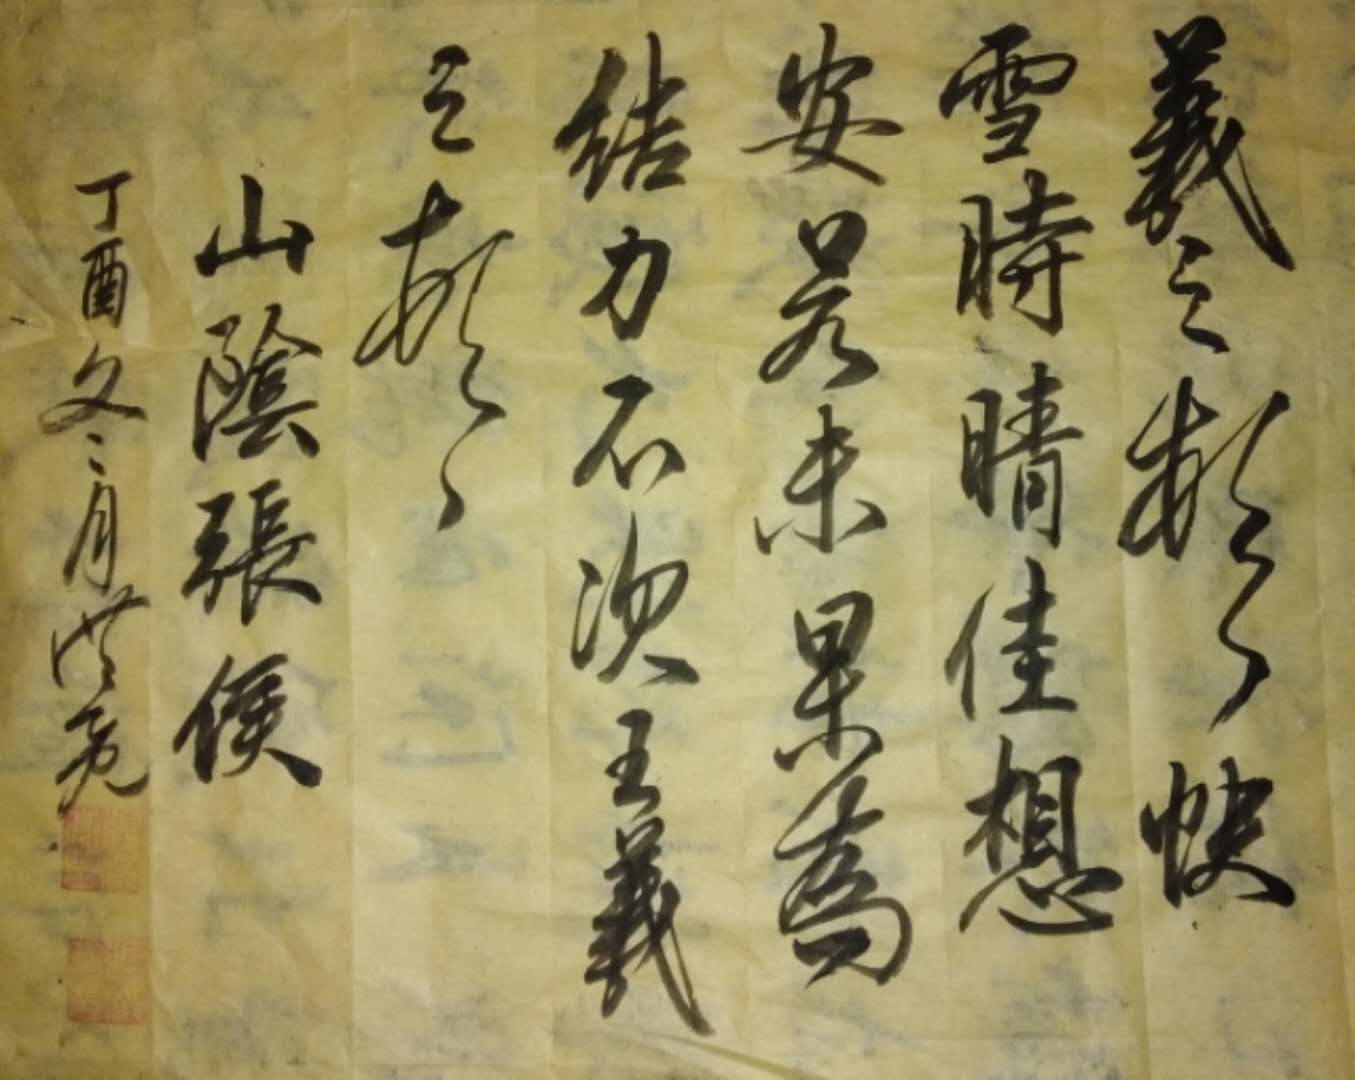 羲之頓首快
雪時晴佳想
安善未果為
結力不次王羲
之頓首
山陰張侯
丁酉冬月